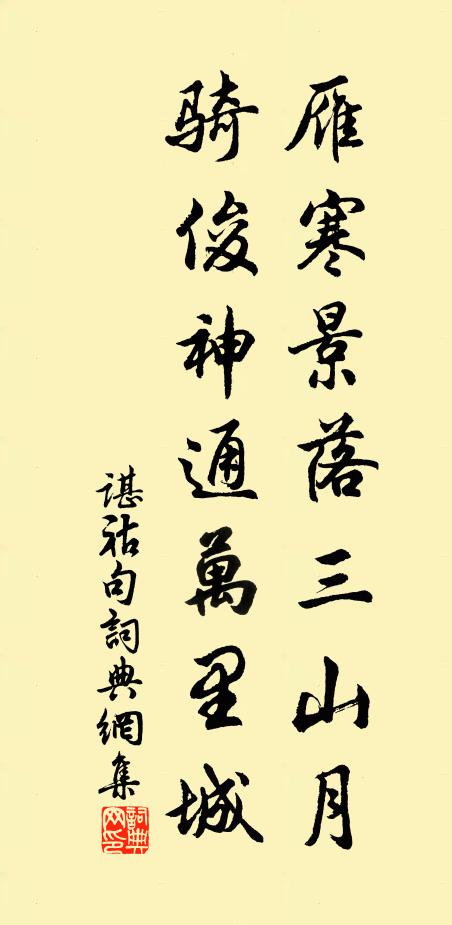 雁寒景落三山月
騎俊神通萬里城
諶祜句詞典網集
詞典
网印